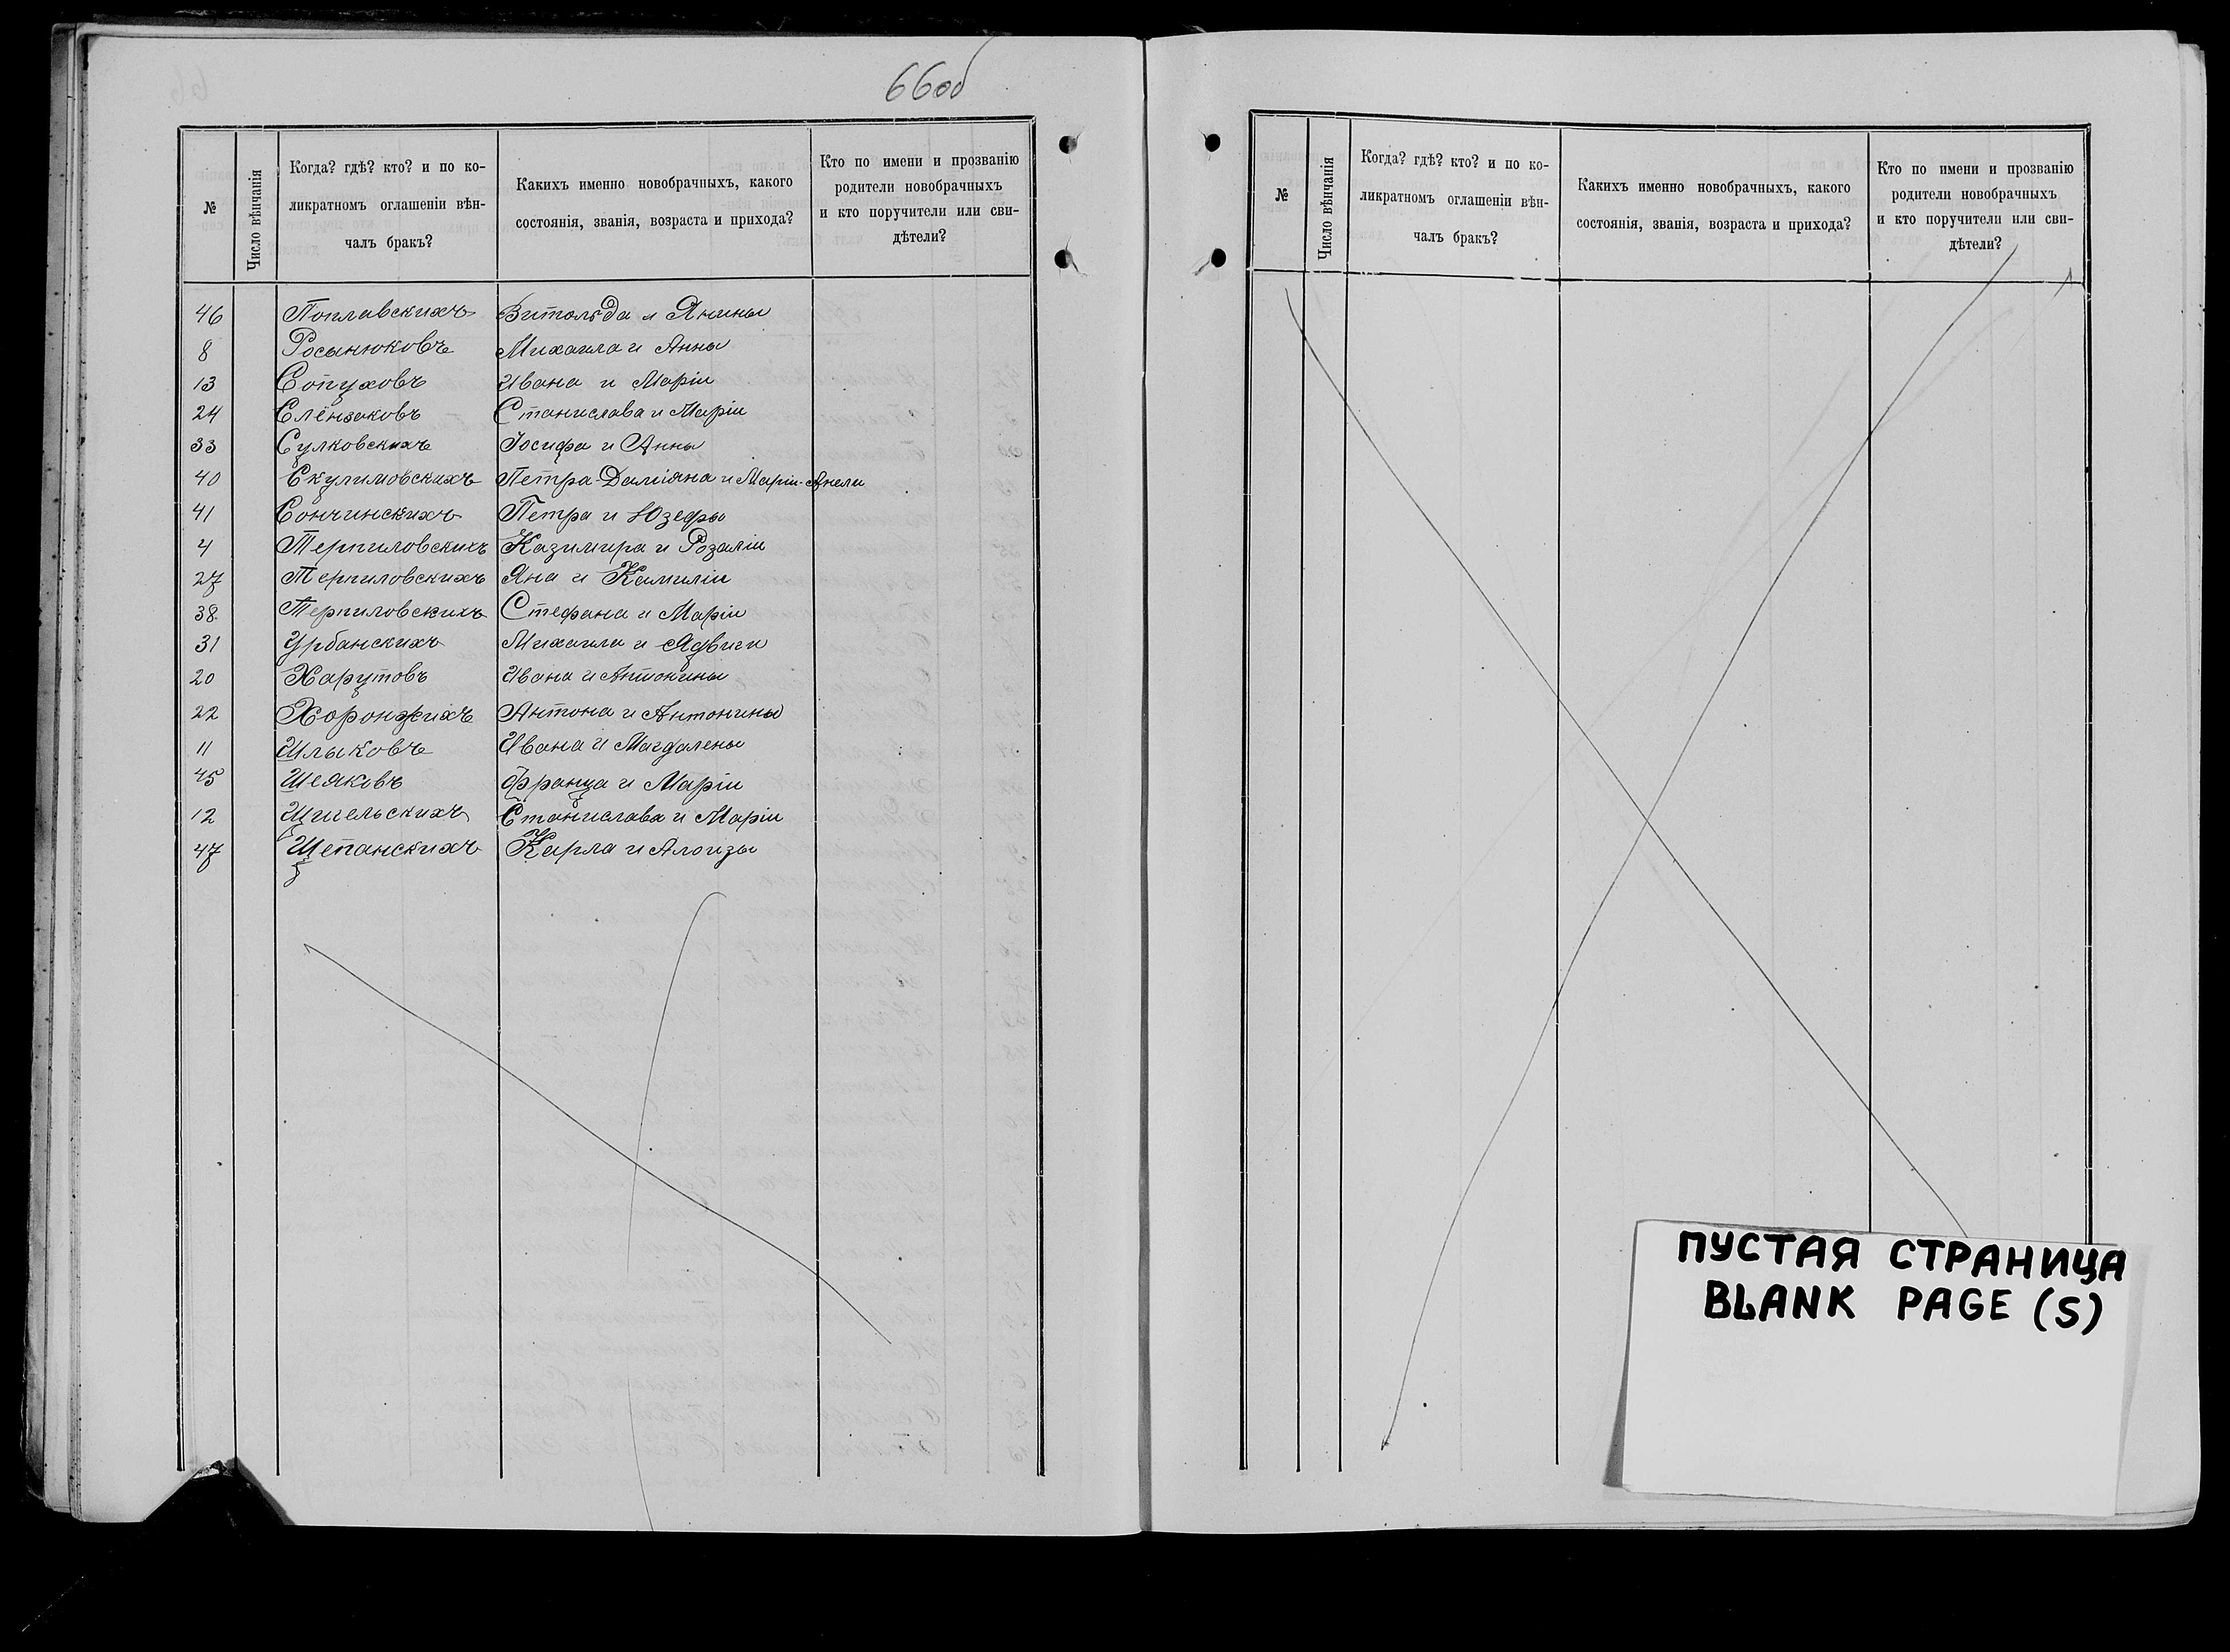 66об
№
Число вѣнчанія
Когда? гдѣ? кто? и по ко-
ликратномъ оглашеніи вѣн-
чалъ бракъ?
Какихъ именно новобрачныхъ, какого
состоянія, званія, возраста и прихода?
Кто по имени и прозванію
родители новобрачныхъ
и кто поручители или сви-
дѣтели?
46 Поплавскихъ Витольда и Янины
8 Росынюковъ Михаила и Анны
13 Сопуховъ Ивана и Маріи
24 Слёнзаковъ Станислава и Маріи
33 Сулковскихъ Іосифа и Анны
40 Скулимовскихъ Петра-Даміяна и Маріи-Анели
41 Сончинскихъ Петра и Юзефы
4 Терпиловскихъ Казимира и Розаліи
27 Терпиловскихъ Яна и Камиліи
38 Терпиловскихъ Стефана и Маріи
31 Урбанскихъ Михаила и Ядвиги
20 Харутовъ Ивана и Антонины
22 Хоронжихъ Антона и Антонины
11 Шлыковъ Ивана и Магдалены
45 Шеяковъ Франца и Маріи
12 Щигельскихъ Станислава и Маріи
47 Щепанскихъ Карла и Алоизы
№
Число вѣнчанія
Когда? гдѣ? кто? и по ко-
ликратномъ оглашеніи вѣн-
чалъ бракъ?
Какихъ именно новобрачныхъ, какого
состоянія, званія, возраста и прихода?
Кто по имени и прозванію
родители новобрачныхъ
и кто поручители или сви-
дѣтели?
ПУСТАЯ СТРАНИЦА
BLANK PAGE (S)